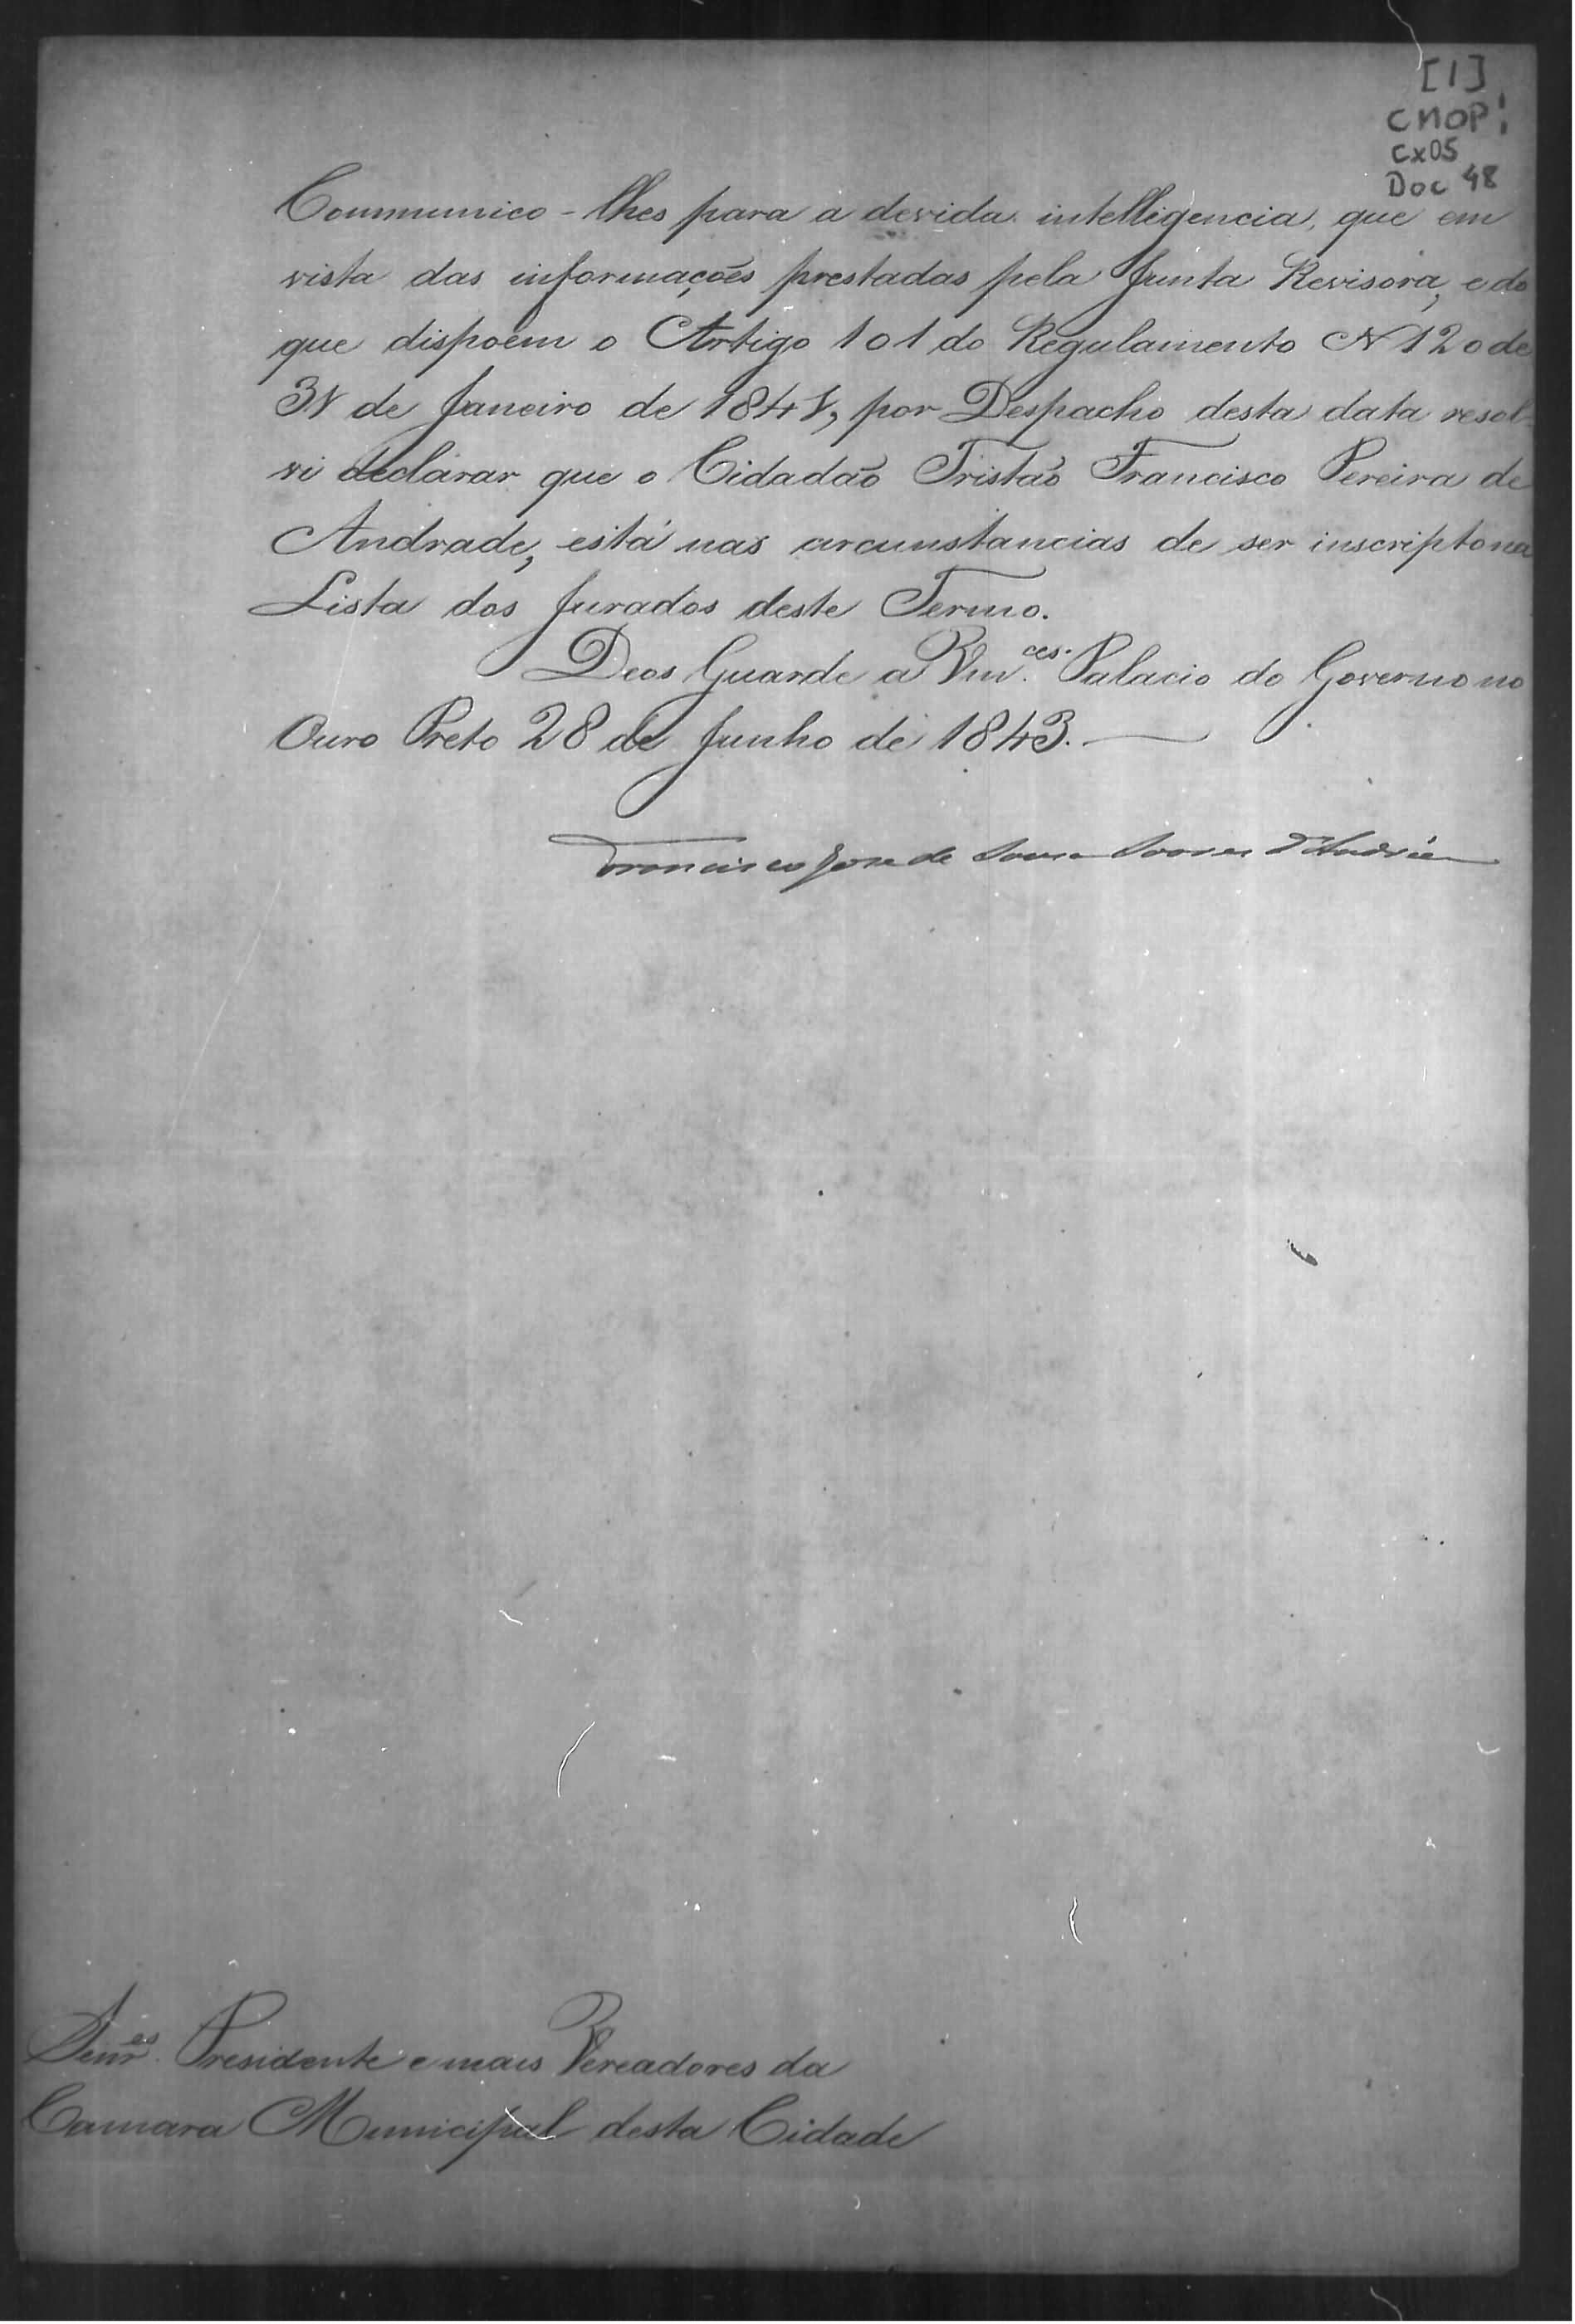 [1]
CMOP
Cx05
Doc 48
Communico-lhes para a devida intelligencia, que em
vista das informações prestadas pela Junta Revisora, e do
que dispoem o Artigo 101 do Regulamento N 120 de
31 de Janeiro de 1841, por Despacho desta data resol-
vi declarar que o Cidadão Tristão Francisco Pereira de
Andrade, está nas circunstancias de ser inscripto na
Lista dos Jurados deste Termo.
Deos Guarde a Vm.ces. Palacio do Governo no
Ouro Preto 28 de Junho de 1843.
Francisco Jose de Souza Soares d'Andréa
Senr.es Presidente e mais Vereadores da
Camara Municipal desta Cidade